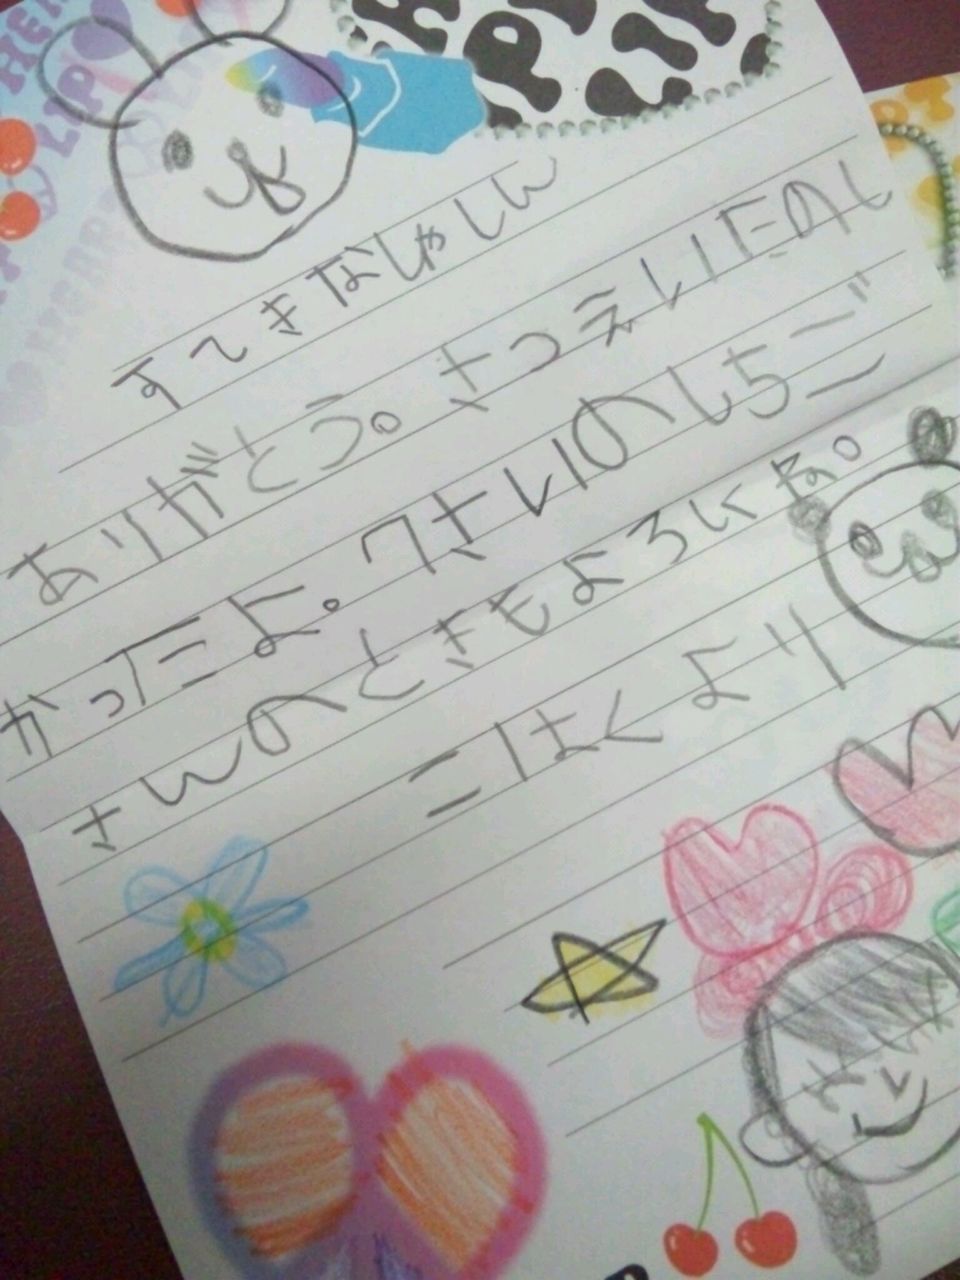 すてきなしゃしん
ありがとう。さつえいたのし
かったよ。7さいのしちご
さんのときもよろしくね。
こはくより